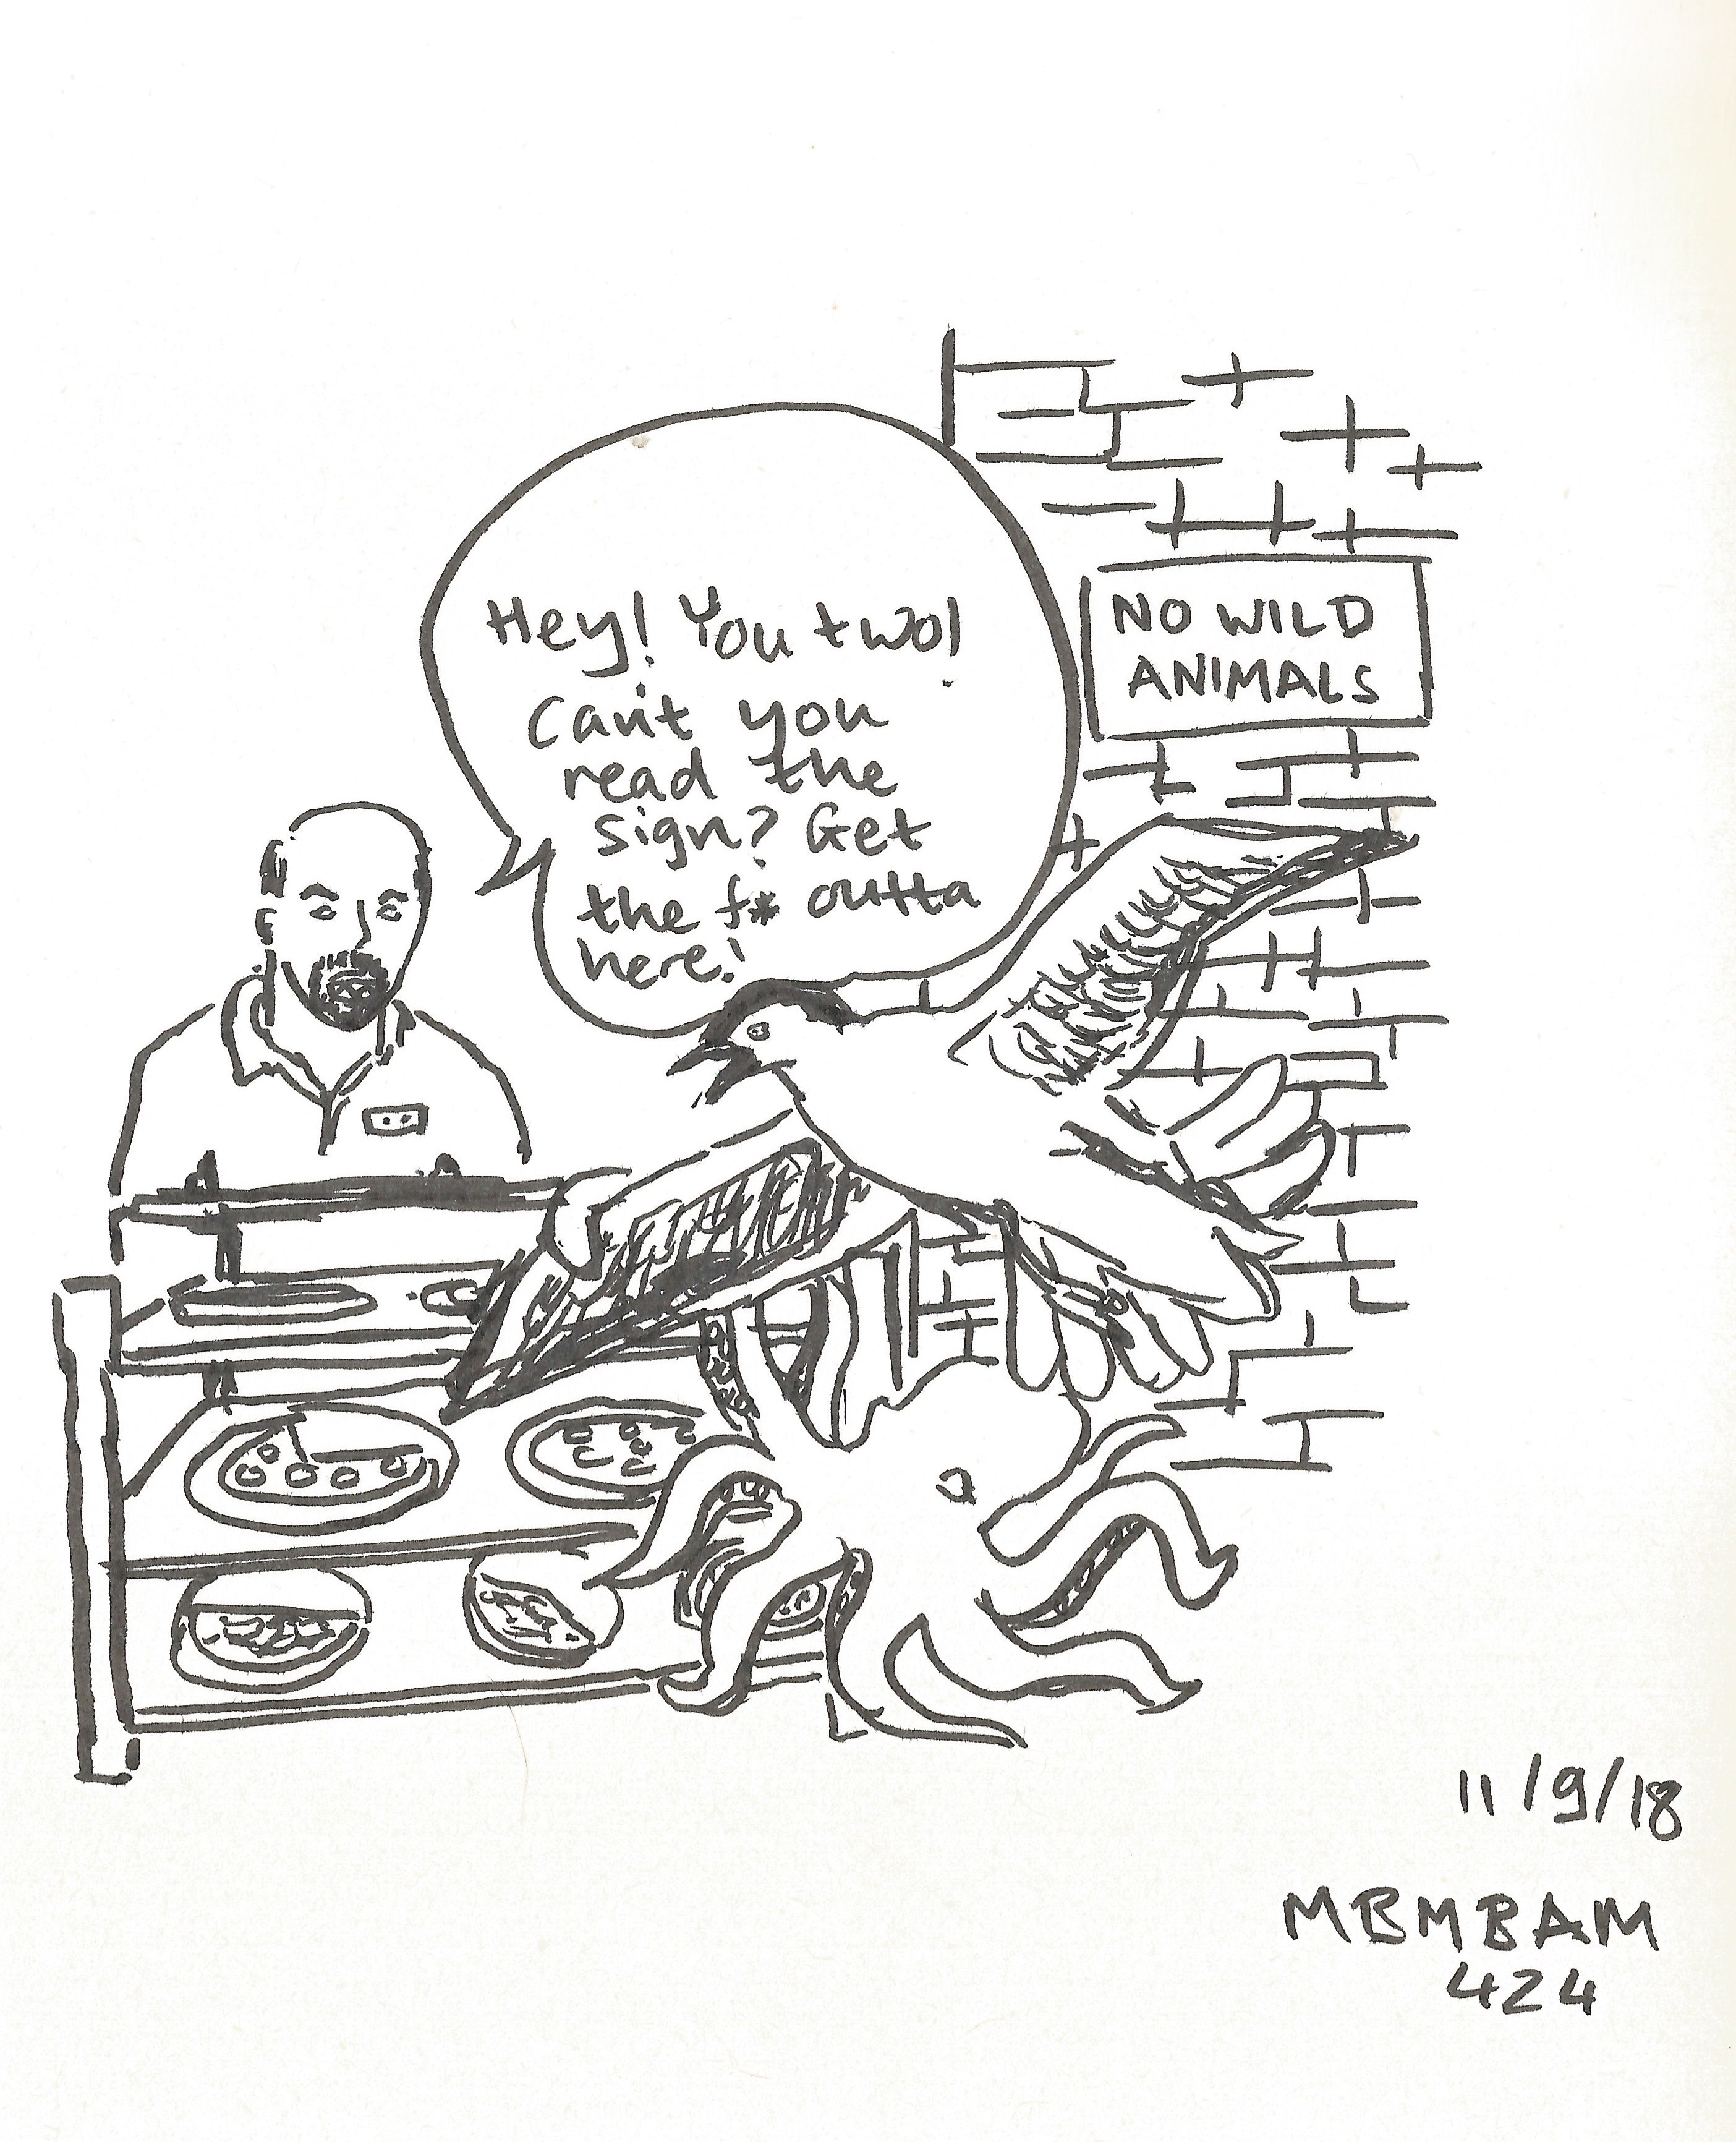 Hey! You two!
Can't you
read the
sign? Get
the f* outta
here!
NO WILD
ANIMALS
11/9/18
MBMBAM
424